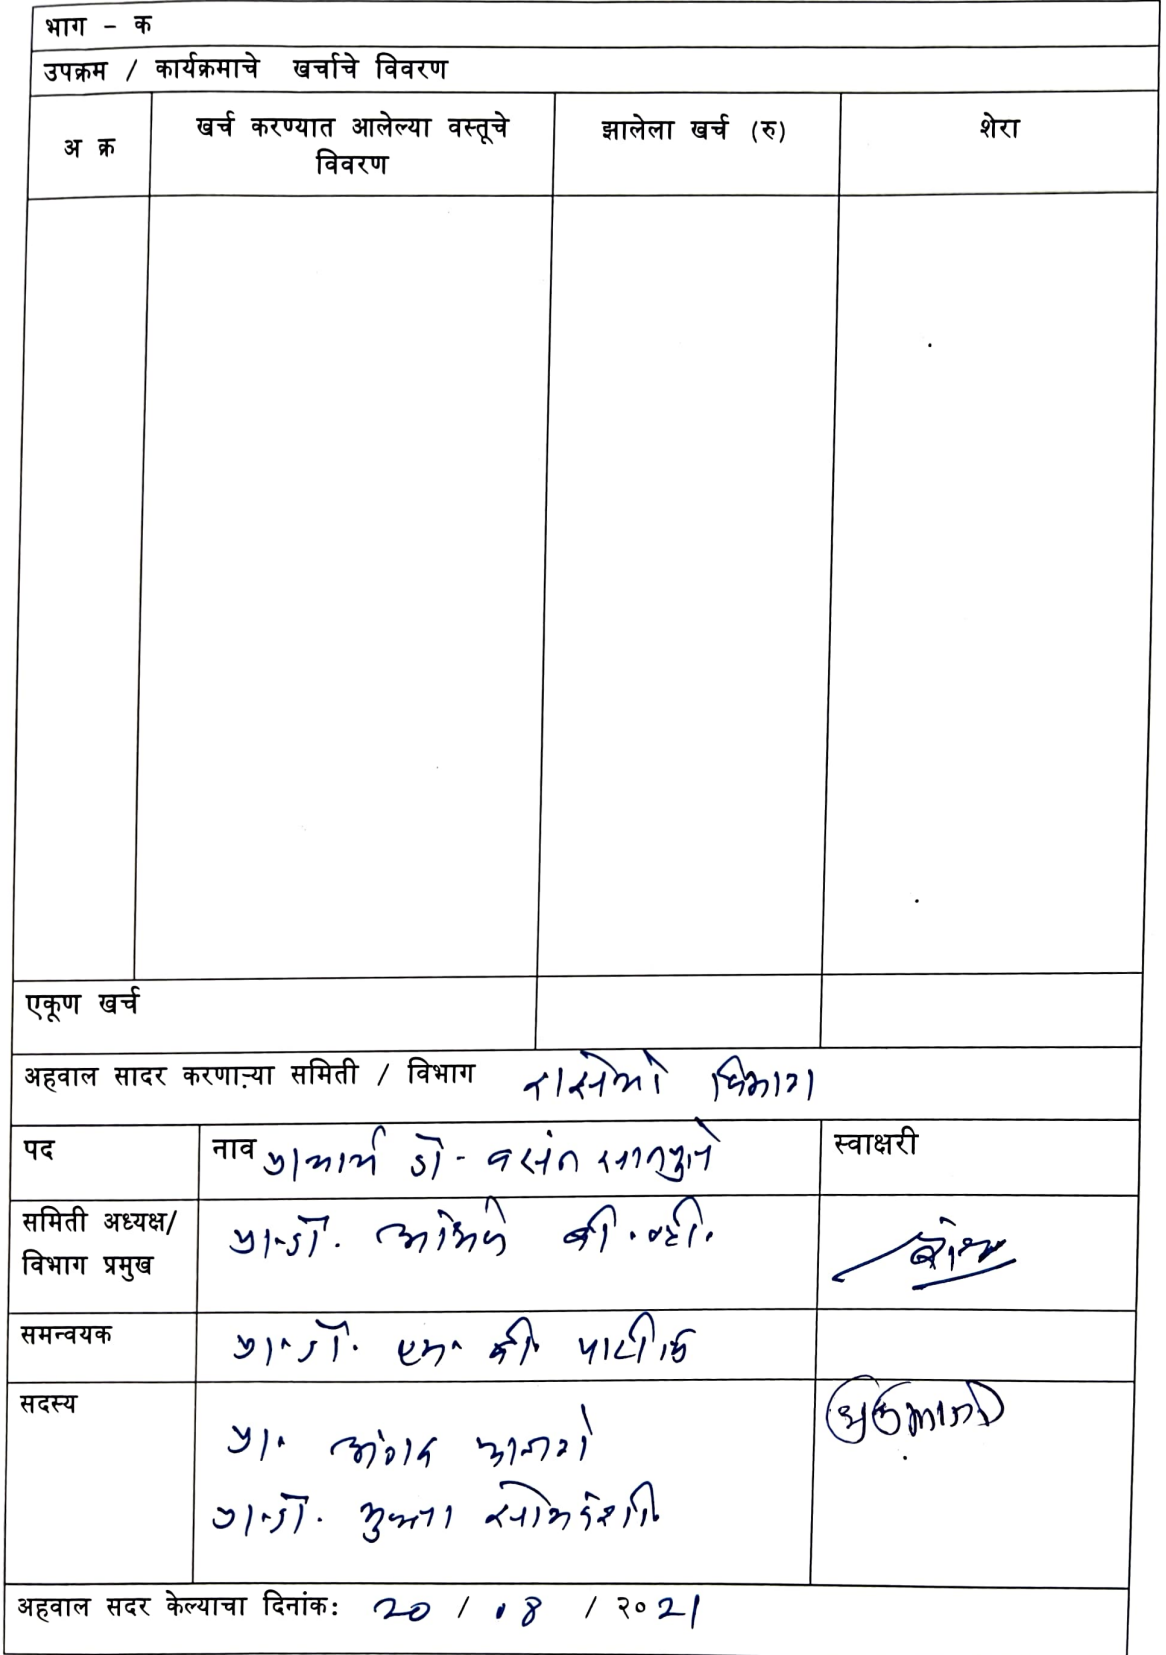 भाग - क
उपक्रम / कार्यक्रमाचे खर्चाचे विवरण
अ क्र
खर्च करण्यात आलेल्या वस्तूचे
विवरण
झालेला खर्च (रु)
शेरा
एकूण खर्च
अहवाल सादर करणाऱ्या समिती / विभाग रासेयो विभाग
पद
नाव प्राचार्य डॉ. वसंत सातपुते
स्वाक्षरी
समिती अध्यक्ष/
विभाग प्रमुख
प्रा.डॉ. बी.व्ही.
समन्वयक
प्रा.डॉ. एम. डी. पाटील
सदस्य
प्रा. अंगद
प्रा.डॉ. मुक्ता सोमवंशी
अहवाल सदर केल्याचा दिनांक: 20 / 08 / २०21